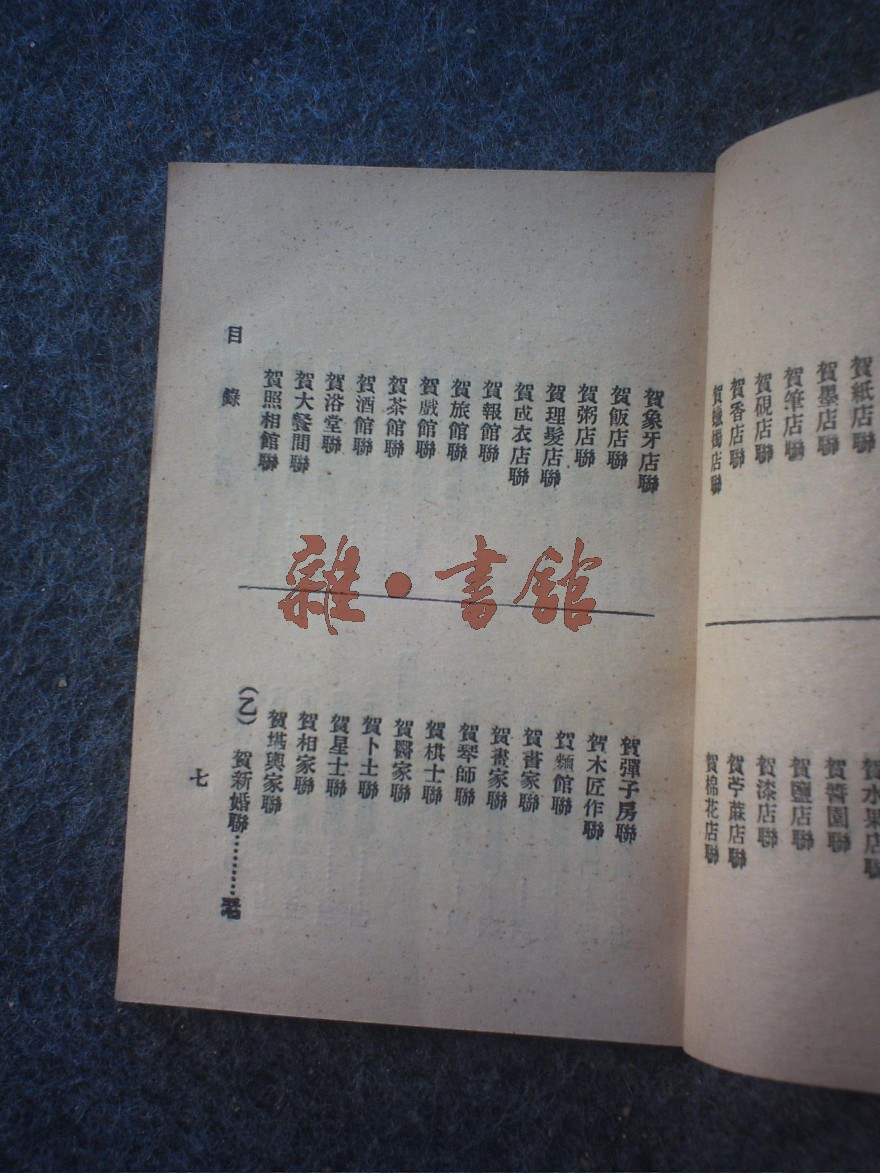 賀紙店聯
賀墨店聯
賀筆店聯
賀硯店聯
賀香店聯
賀蠟燭店聯
賀水果店聯
賀醬園聯
賀鹽店聯
賀漆店聯
賀苧蔴店聯
賀棉花店聯
賀象牙店聯
賀飯店聯
賀粥店聯
賀理髮店聯
賀成衣店聯
賀報館聯
賀旅館聯
賀戲館聯
賀茶館聯
賀酒館聯
賀浴堂聯
賀大餐間聯
賀照相館聯
賀彈子房聯
賀木匠作聯
賀麵館聯
賀書家聯
賀畫家聯
賀琴師聯
賀棋士聯
賀醫家聯
賀卜士聯
賀星士聯
賀相家聯
賀堪輿家聯
(乙) 賀新婚聯………
目錄
七
雜·書館